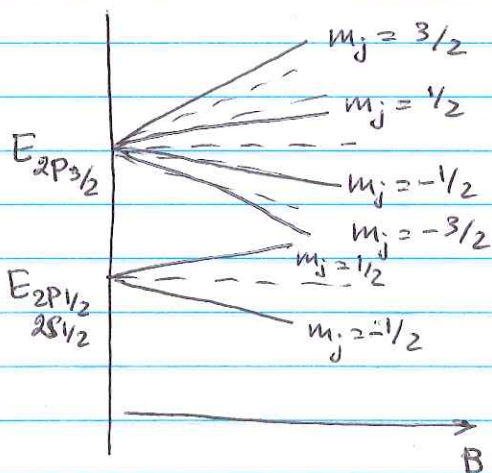 m_j = 3/2
m_j = 1/2
E_2P3/2
m_j = -1/2
m_j = -3/2
m_j = 1/2
E_2P1/2
2S1/2
m_j = -1/2
B